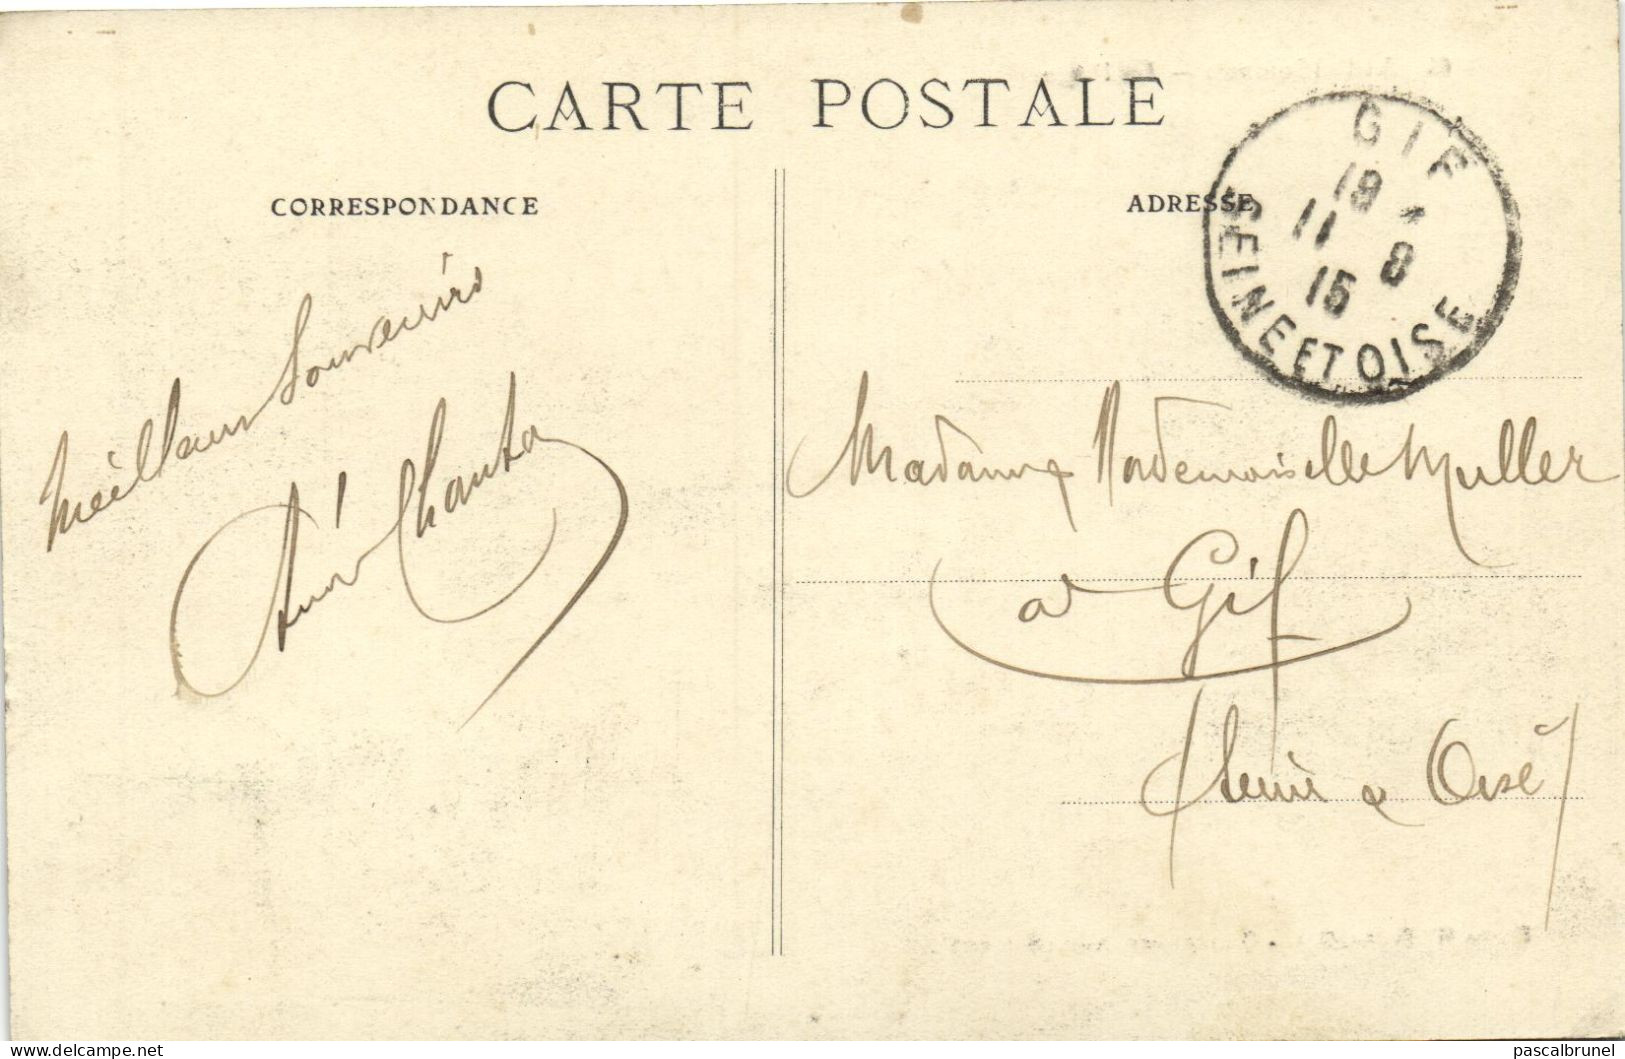 CARTE POSTALE
CORRESPONDANCE
ADRESSE
GIF
18 *
11 8
15
SEINE ET OISE
Meilleurs Souvenirs
Madame Mademoiselle Muller
à Gif
(Seine & Oise)
www.delcampe.net
pascalbrunel